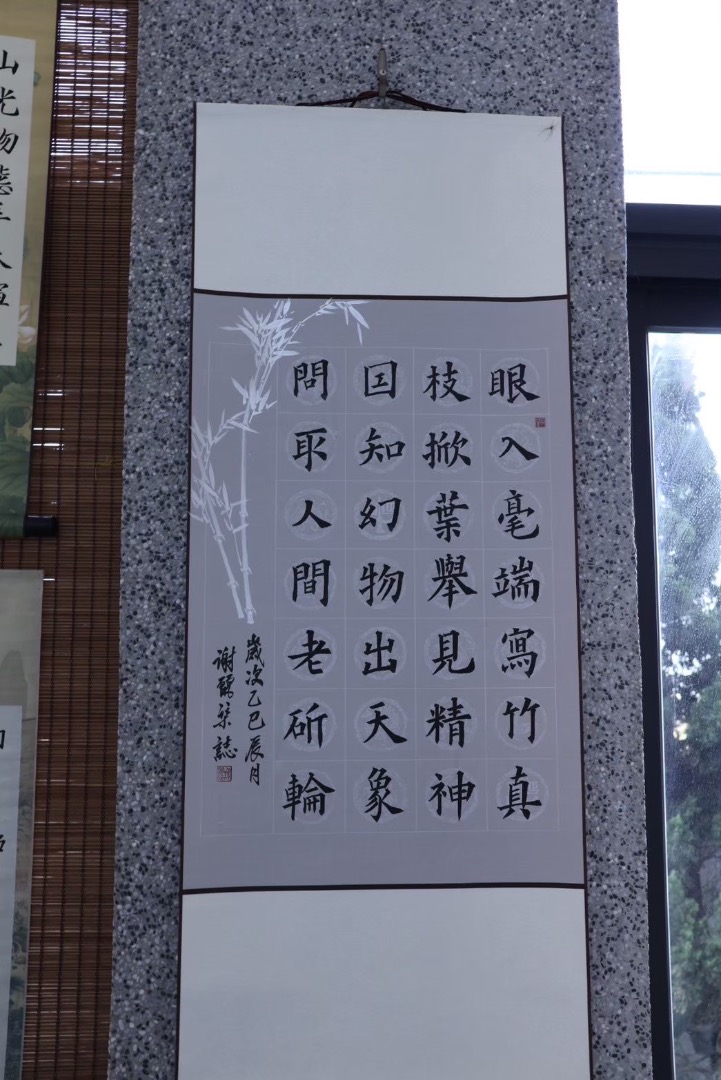 眼入毫端寫竹真
枝掀葉舉見精神
因知幻物出天象
問取人間老斫輪
歲次乙巳辰月
謝誌
山光物態